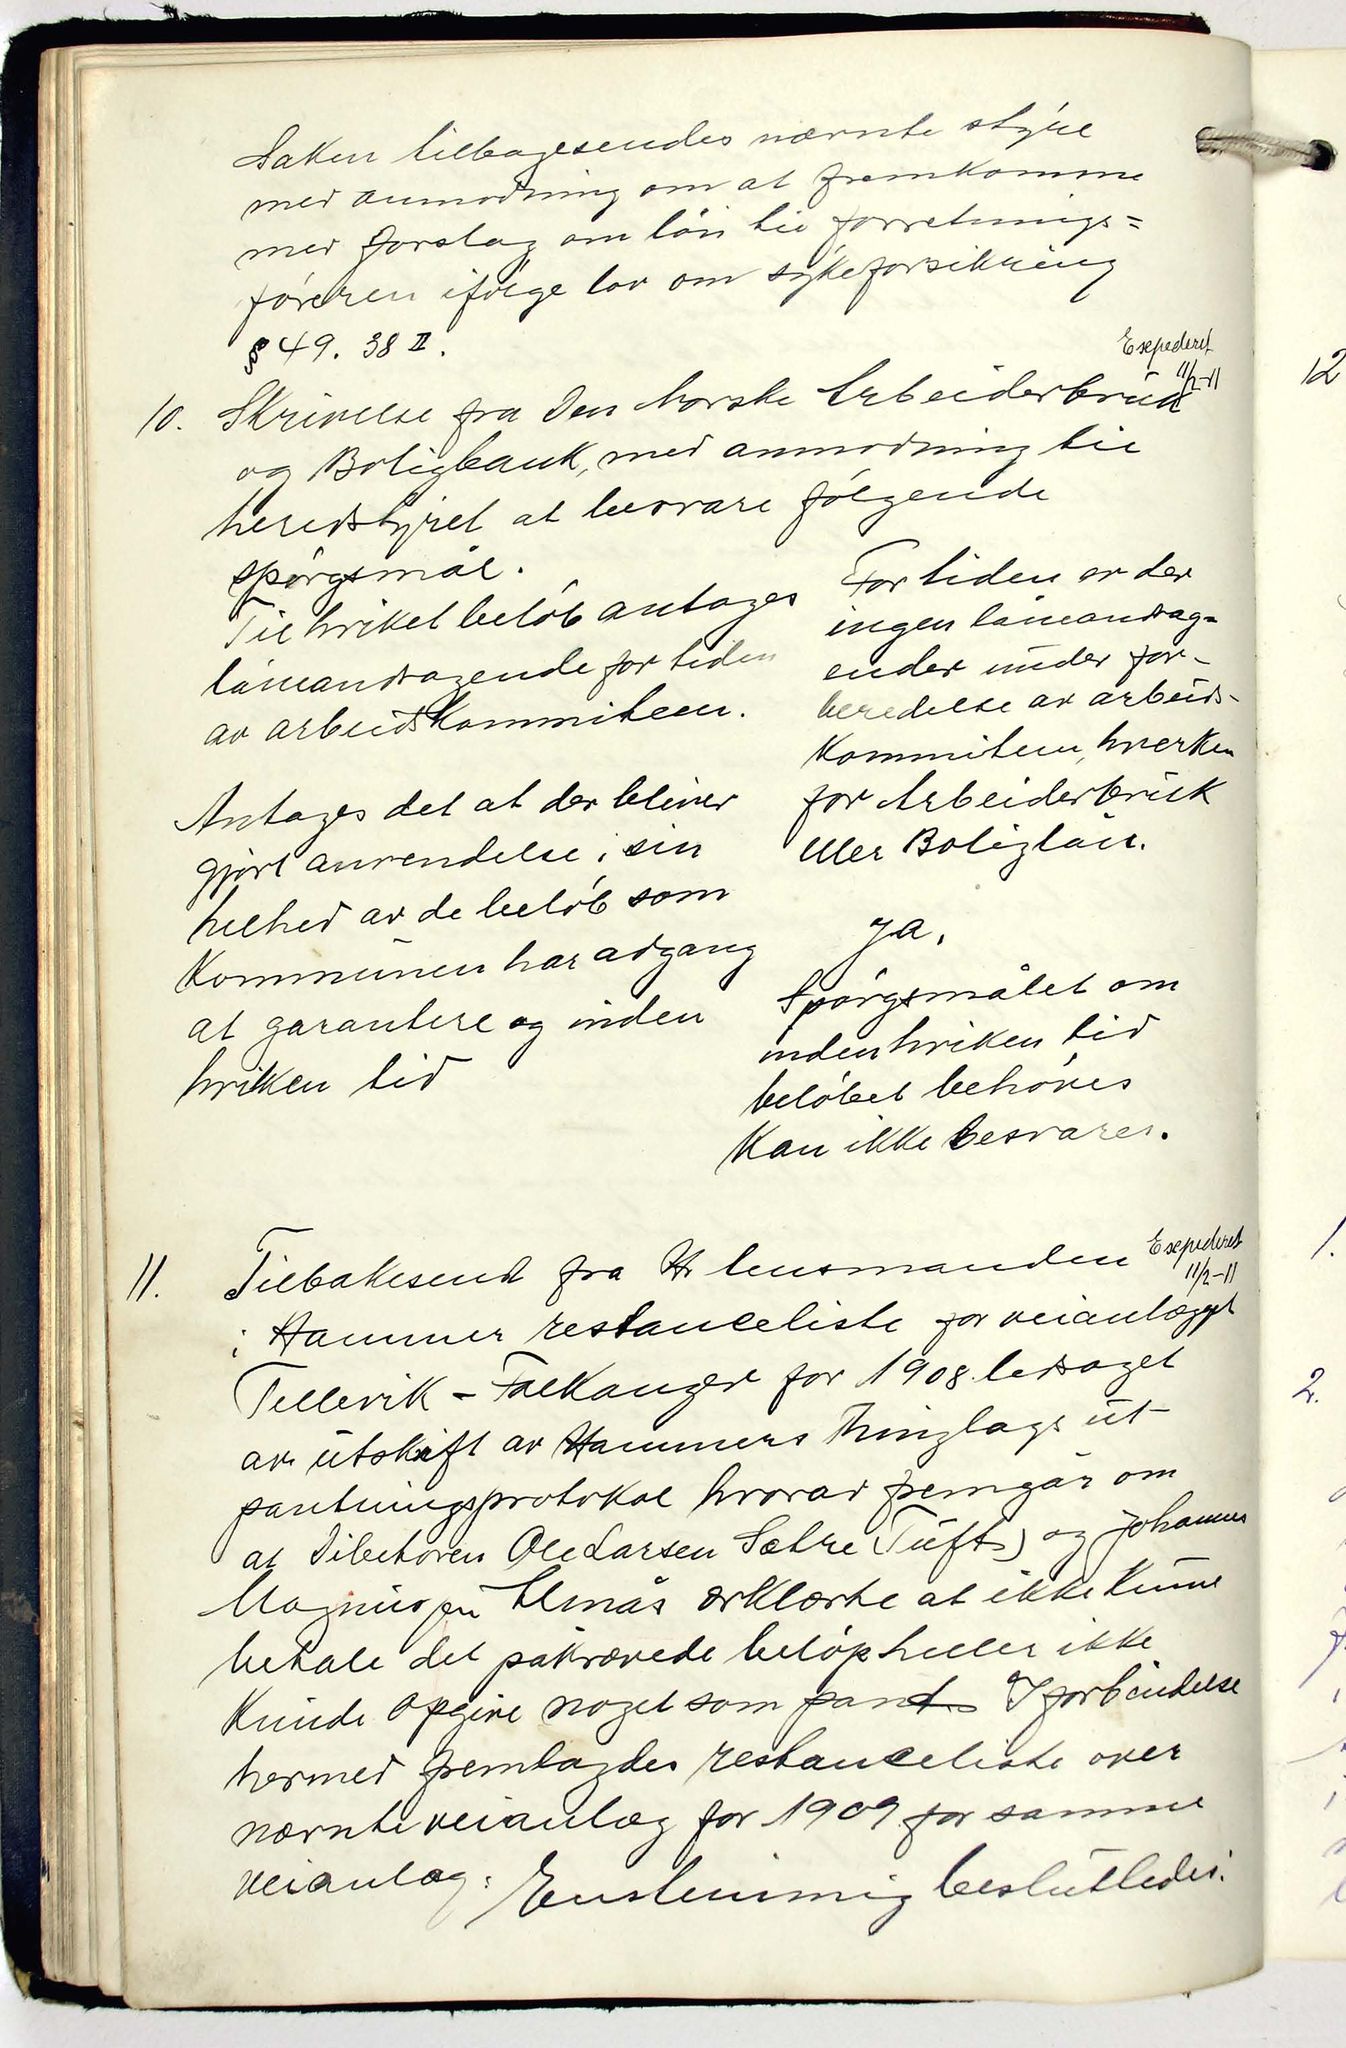 Saken tilbagesendes nævnte styre
med anmodning om at fremkomme
med forslag om løn til forretnings=
føreren ifølge lov om sykeforsikring
§ 49. 38 II.
Exepederet
11/2-11
10. Skrivelse fra Den Norske Arbeiderbruk
og Boligbank, med anmodning til
heredstyret at besvare følgende
spørgsmål.
Til hvilket beløb antages
låneandragende for tiden
av arbeidskommiteen.
Antages det at der bliver
gjort anvendelse i sin
helhed av de beløb som
Kommunen har adgang
at garantere og inden
hvilken tid
For tiden er der
ingen låneandrag=
ender under for-
beredelse av arbeids-
Kommiteen, hverken
for Arbeiderbruk
eller Boliglån.
Ja.
Spørgsmålet om
inden hvilken tid
beløbet behøves
Kan ikke besvares.
Exepederet
11/2-11
11. Tilbakesendt fra Hr lensmanden
i Hammer restanceliste for veianlægget
Tellevik - Falkanger for 1908 ledsaget
av utskift av Hammers Thinglags ut-
pantningsprotokol hvorav fremgår om
at Debitoren Ole Larsen Sætre (Tuft) og Johannes
Magnussen Elmås erklærte at ikke kunne
betale det påkrævede beløp heller ikke
Kunde opgive noget som pant. I forbindelse
hermed fremlagdes restanceliste over
nævnte veianlæg for 1909 for samme
veianlæg: Enstemmig besluttedes:
12
1.
2.